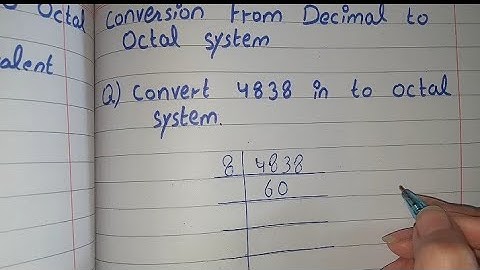 Octal
alent
Conversion from Decimal to
Octal system
Q) Convert 4838 in to octal
system.
8 4838
60